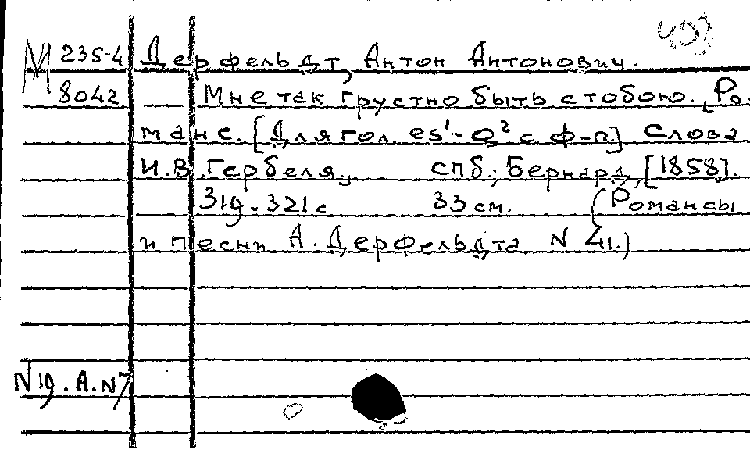 М 235-4 Дерфельдт, Антон Антонович.
8042 Мне так грустно быть с тобою. [Ро-
манс. [Для гол. es¹-g² с ф-п.] Слова
И.В. Гербеля. СПб., Бернард, [1858].
319-321 с. 33 см. (Романсы
и песни А. Дерфельдта N 41.)
N 19. А. N 7